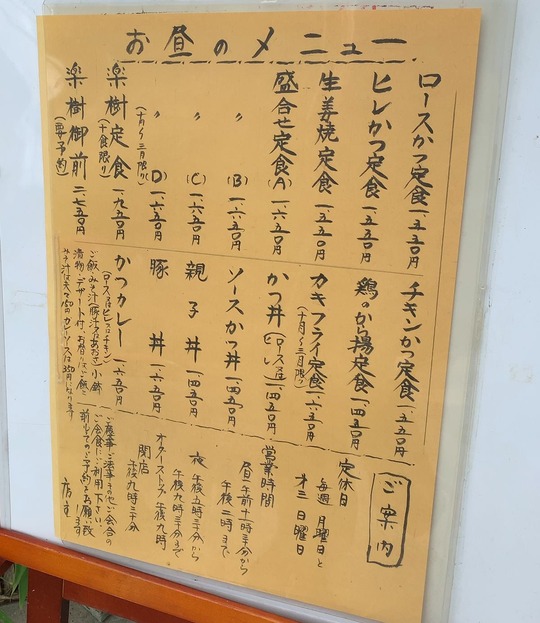 お昼のメニュー
ロースかつ定食 一、五五〇円
ヒレかつ定食 一、五五〇円
生姜焼定食 一、五五〇円
盛合せ定食(A) 一、六五〇円
〃 (B) 一、六五〇円
〃 (C) 一、六五〇円
〃 (D) 一、六五〇円
(十月〜三月限り)
楽樹定食 一、九五〇円
(十食限り)
楽樹御前 二、七五〇円
(要予約)
チキンかつ定食 一、五五〇円
鶏のから揚定食 一、四五〇円
カキフライ定食 一、六五〇円
(十月〜三月限り)
かつ丼(ロース又はヒレ) 一、四五〇円
ソースかつ丼 一、四五〇円
親子丼 一、四五〇円
豚丼 一、六五〇円
かつカレー 一、六五〇円
(ロース又はヒレ又はチキン)
ご飯・みそ汁(豚汁又はあおさ)小鉢
漬物・デザート付、お替りはご飯と
みそ汁は各々150円カレーソースは350円になります
ご案内
定休日
毎週 月曜日と
オ三 日曜日
営業時間
昼 午前十一時三十分から
午後二時まで
夜 午後五時三十分から
午後九時三十分まで
オーダーストップ 午後九時
閉店
午後九時三十分
ご慶事・ご法事・その他ご会合の
ご会食にご利用下さい
前もってのご予約をお願い致
します
店主